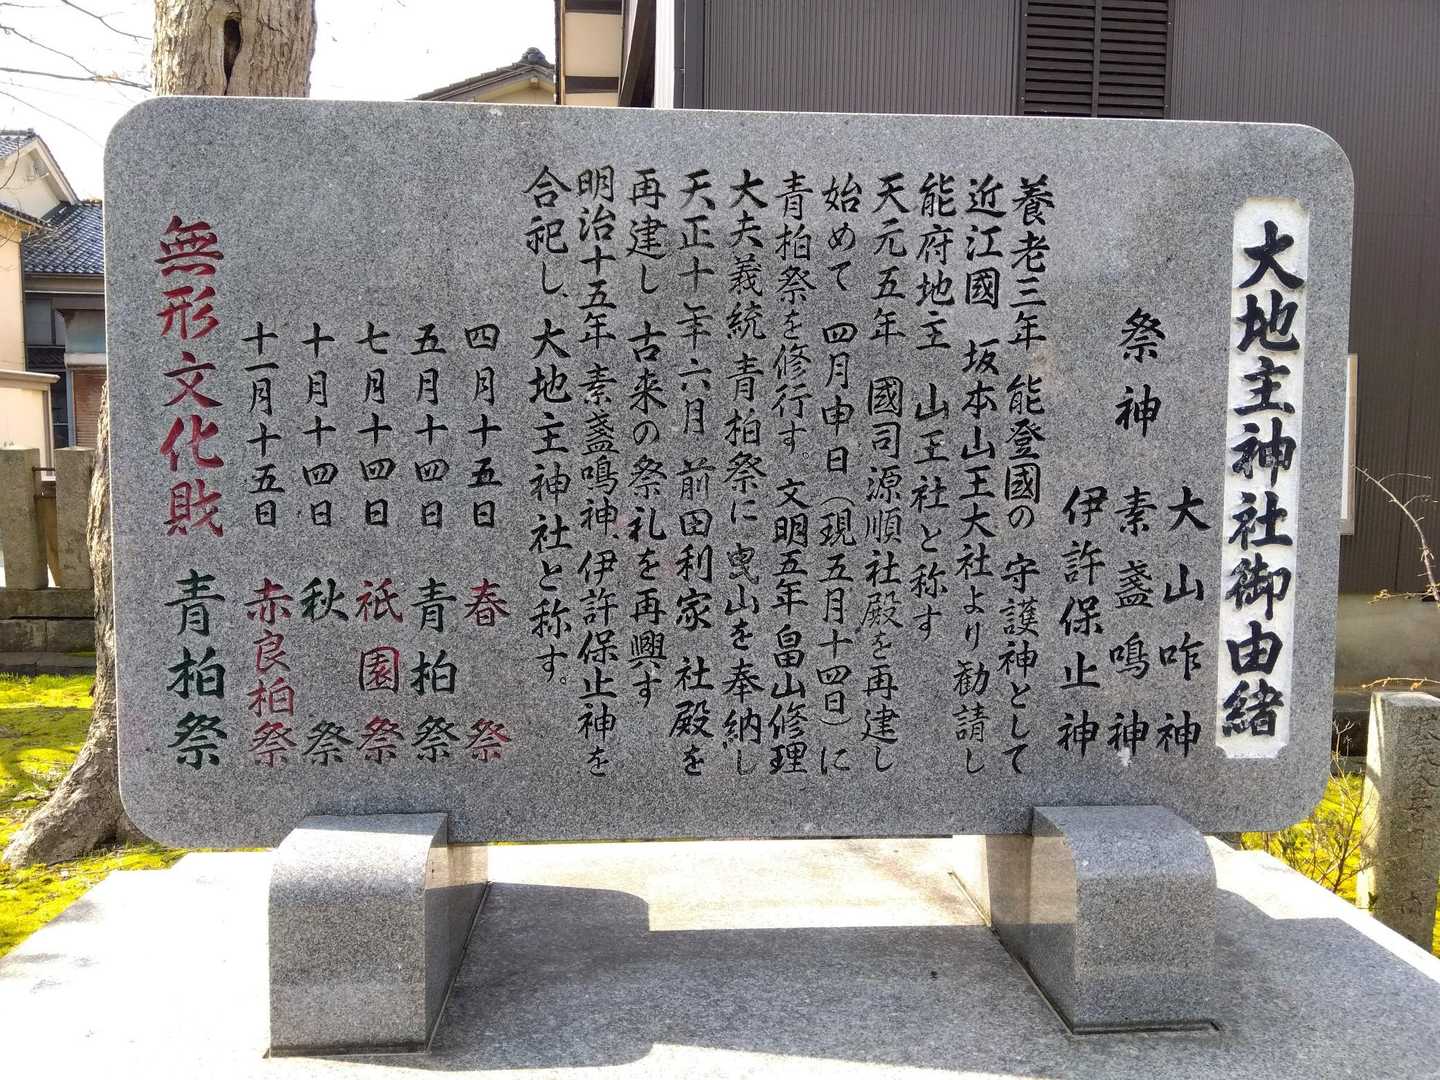 大地主神社御由緒
大山咋神
祭神 素盞鳴神
伊許保止神
養老三年 能登國の 守護神として
近江國 坂本山王大社より勧請し
能府地主 山王社と称す
天元五年 國司源順社殿を再建し
始めて 四月申日(現五月十四日)に
青柏祭を修行す。文明五年畠山修理
大夫義統 青柏祭に曳山を奉納し
天正十年六月 前田利家 社殿を
再建し 古来の祭礼を再興す
明治十五年 素盞鳴神、伊許保止神を
合祀し、大地主神社と称す。
四月十五日 春祭
五月十四日 青柏祭
七月十四日 祇園祭
十月十四日 秋祭
十一月十五日 赤良柏祭
無形文化財 青柏祭